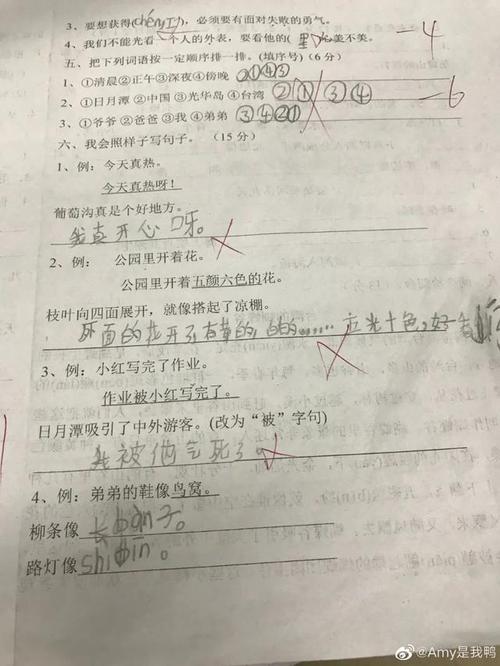 3、要想获得(chénɡ jī)，必须要有面对失败的勇气。
4、我们不能光看一个人的外表，要看他的(里 美不美。 -4
五、把下列词语按一定顺序排一排。(填序号)(6分)
1、①清晨②正午③深夜④傍晚 ②①④③
2、①日月潭②中国③光华岛④台湾 ②①③④ -6
3、①爷爷②爸爸③我④弟弟 ③④②①
六、我会照样子写句子。(15分)
1、例：今天真热。
今天真热呀！
葡萄沟真是个好地方。
我真开心呀。
2、例： 公园里开着花。
公园里开着五颜六色的花。
枝叶向四面展开，就像搭起了凉棚。
的花开了有黄的，白的......五光十色，好看
3、例：小红写完了作业。
作业被小红写完了。
日月潭吸引了中外游客。(改为“被”字句)
我被俩气死了。
4、例：弟弟的鞋像鸟窝。
柳条像长biàn子。
路灯像shì bīn。
@Amy是我鸭